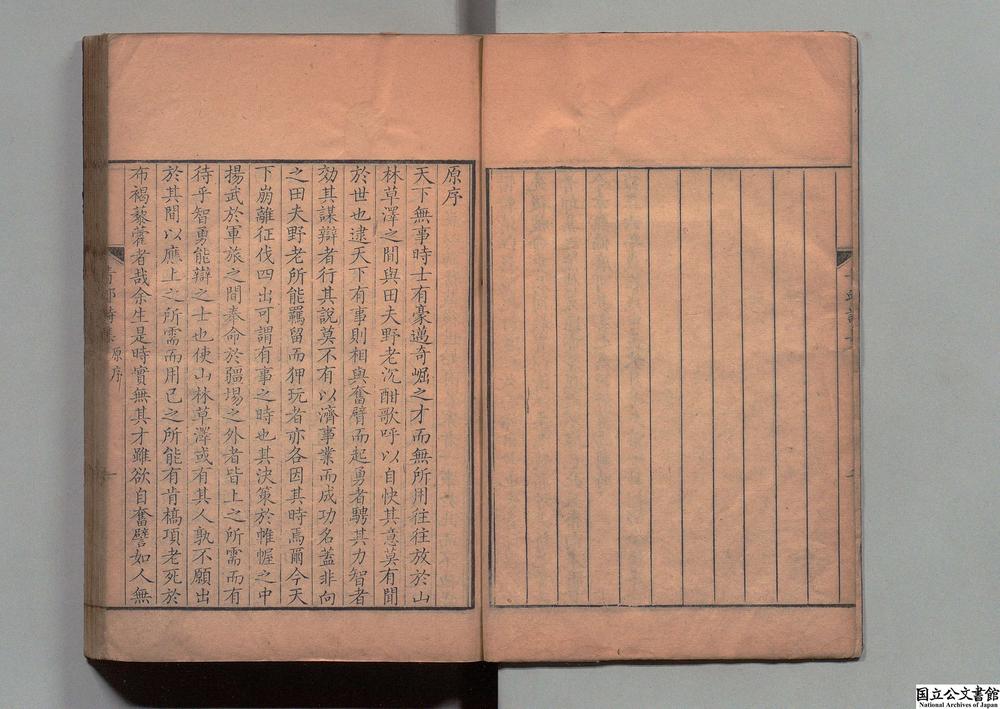 原序
天下無事時士有豪邁奇崛之才而無所用往往放於山
林草澤之間與田夫野老沉酣歌呼以自快其意莫有聞
於世也逮天下有事則相與奮臂而起勇者騁其力智者
効其謀辯者行其說莫不有以濟事業而成功名蓋非向
之田夫野老所能羈留而狎玩者亦各因其時焉爾今天
下崩離征伐四出可謂有事之時也其決策於帷幄之中
揚武於軍旅之間奉命於疆埸之外者皆上之所需而有
待乎智勇能辯之士也使山林草澤或有其人孰不願出
於其間以應上之所需而用己之所能有肯槁項老死於
布褐藜藿者哉余生是時實無其才雖欲自奮譬如人無
原序
国立公文書館
National Archives of Japan